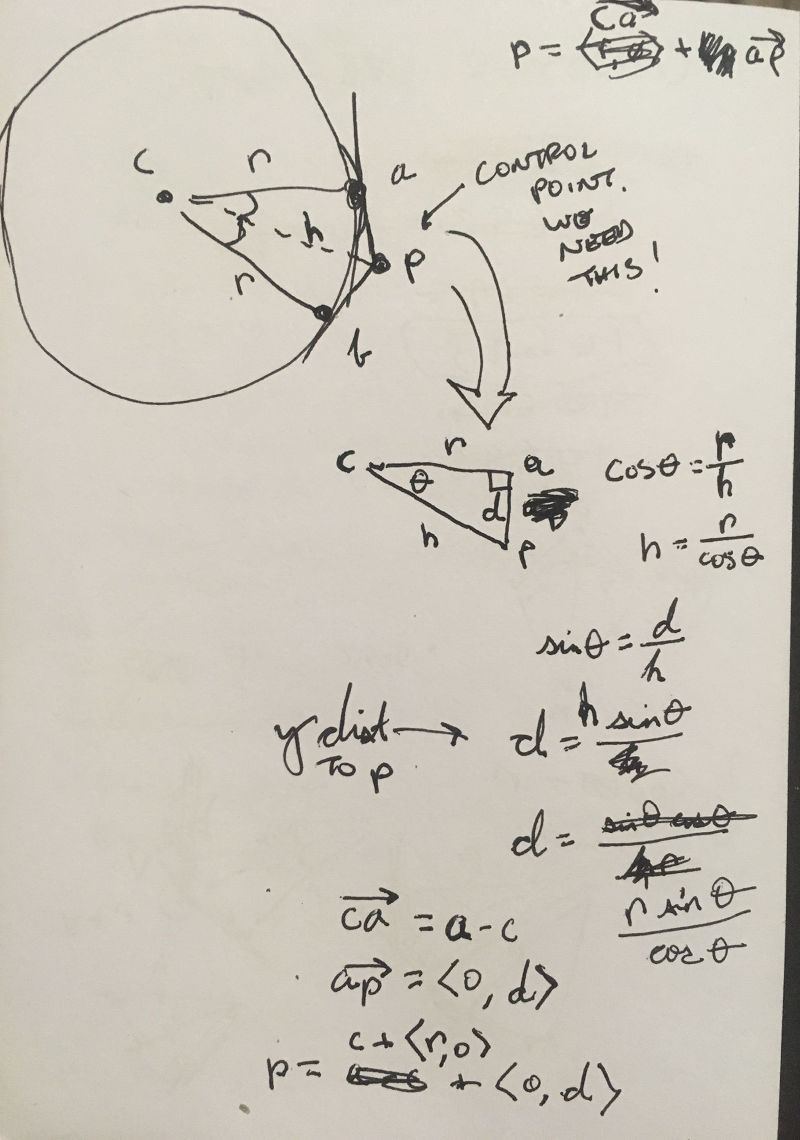 p = \overrightarrow{ca} + \overrightarrow{ap}
c r a
h
r
p
b
CONTROL
POINT.
WE
NEED
THIS!
c r a
θ
d
h p
cosθ = r/h
h = r/cosθ
sinθ = d/h
y dist → d = h sinθ
TO p
d = sinθ cosθ
r sinθ/cosθ
\overrightarrow{ca} = a - c
\overrightarrow{ap} = <0, d>
p = c + <r,0> + <0, d>